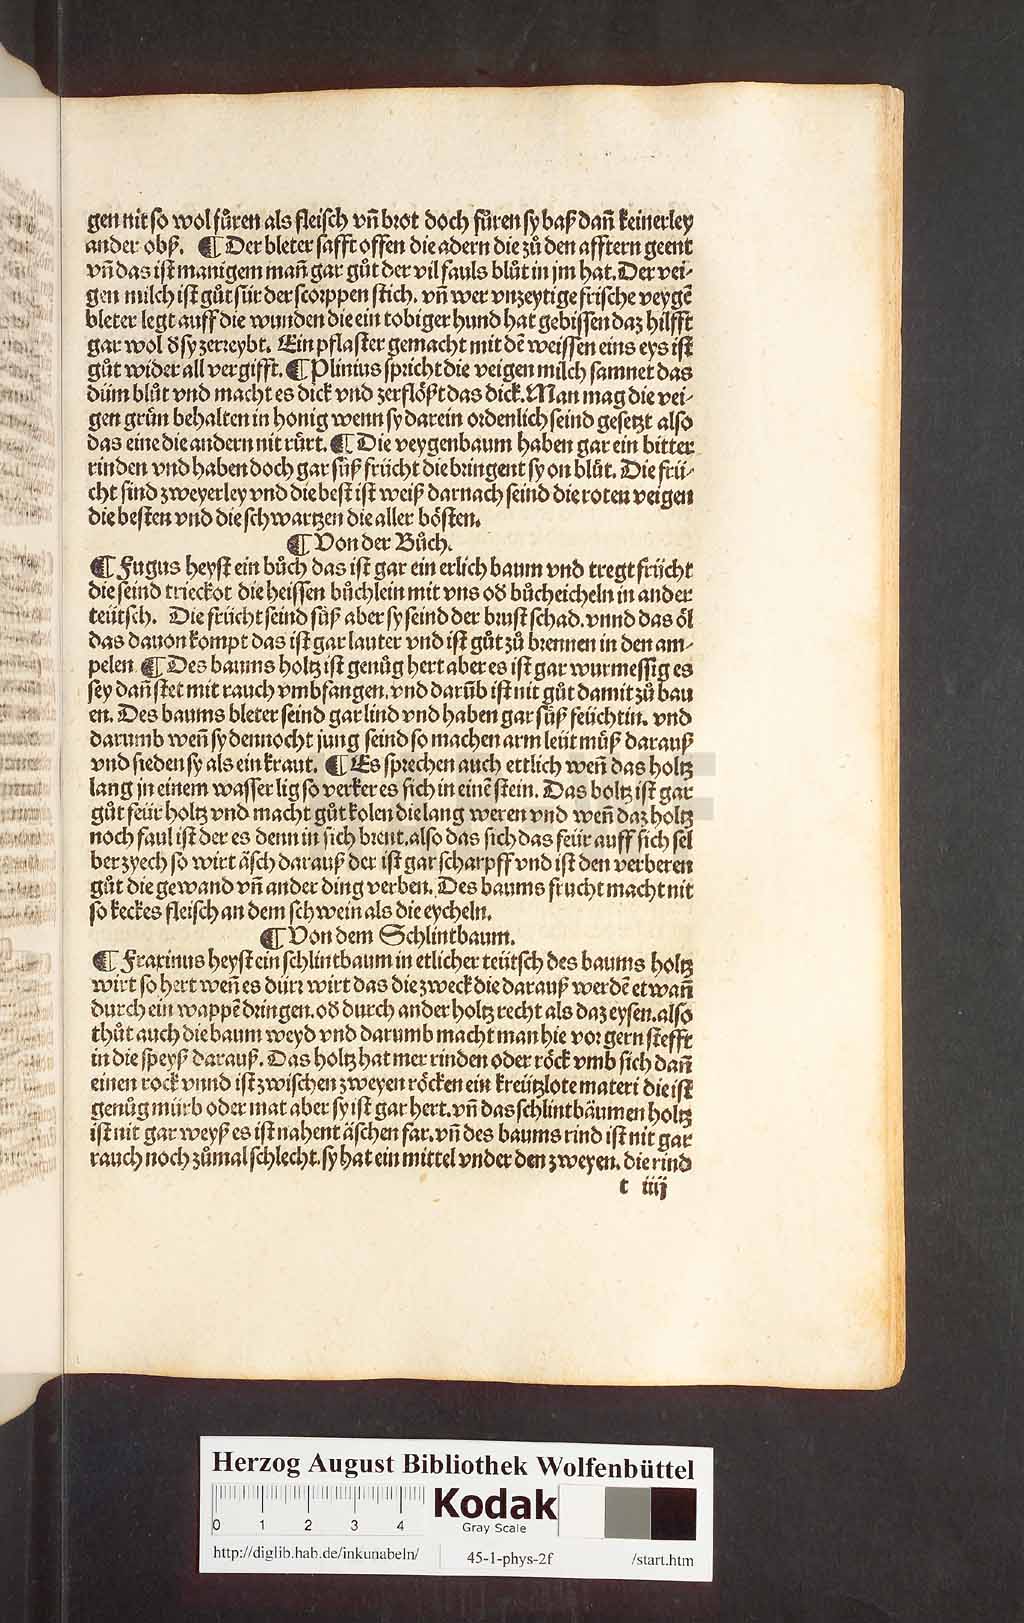 gen nit so wol fůren als fleisch vñ brot doch fůren sy baß dañ keinerley
ander obß. ¶ Der bleter safft offen die adern die zů den afftern geent
vñ das ist manigem mañ gar gůt der vil fauls blůt in jm hat. Der vei⸗
gen milch ist gůt für der scorppen stich. vñ wer vnzeytige frische veygē
bleter legt auff die wunden die ein tobiger hund hat gebissen daz hilfft
gar wol ď sy zerreybt. Ein pflaster gemacht mit dē weissen eins eys ist
gůt wider all vergifft. ¶ Plinius spricht die veigen milch samnet das
düm blůt vnd macht es dick vnd zerflößt das dick. Man mag die vei⸗
gen grün behalten in honig wenn sy darein ordenlich seind gesetzt also
das eine die andern nit rürt. ¶ Die veygenbaum haben gar ein bitter
rinden vnd haben doch gar süß frücht die bringent sy on blůt. Die frü⸗
cht sind zweyerley vnd die best ist weiß darnach seind die roten veigen
die besten vnd die schwartzen die aller bösten.
¶ Von der Bůch.
¶ Fugus heyst ein bůch das ist gar ein erlich baum vnd tregt frücht
die seind trieckot die heissen bůchlein mit vns oď bůcheicheln in ander
teütsch. Die frücht seind süß aber sy seind der brust schad. vnnd das öl
das dauon kompt das ist gar lauter vnd ist gůt zů brennen in den am⸗
pelen ¶ Des baums holtz ist genůg hert aber es ist gar wurmessig es
sey dañ stet mit rauch vmbfangen. vnd darūb ist nit gůt damit zů bau
en. Des baums bleter seind gar lind vnd haben gar süß feüchtin. vnd
darumb weñ sy dennocht jung seind so machen arm leüt můß darauß
vnd sieden sy als ein kraut. ¶ Es sprechen auch ettlich weñ das holtz
lang in einem wasser lig so verker es sich in einē stein. Das holtz ist gar
gůt feür holtz vnd macht gůt kolen die lang weren vnd weñ daz holtz
noch faul ist der es denn in sich brent. also das sich das feür auff sich sel
ber zyech so wirt äsch darauß der ist gar scharpff vnd ist den verberen
gůt die gewand vñ ander ding verben. Des baums frucht macht nit
so keckes fleisch an dem schwein als die eycheln.
¶ Von dem Schlintbaum.
¶ Fraxinus heyst ein schlintbaum in etlicher teütsch des baums holtz
wirt so hert weñ es dürr wirt das die zweck die darauß werdē etwañ
durch ein wappē dringen. oď durch ander holtz recht als daz eysen. also
thůt auch die baum weyd vnd darumb macht man hie vor gern stefft
in die speyß darauß. Das holtz hat mer rinden oder röck vmb sich dañ
einen rock vnnd ist zwischen zweyen röcken ein kreützlote materi die ist
genůg mürb oder mat aber sy ist gar hert. vñ das schlintbäumen holtz
ist nit gar weyß es ist nahent äschen far. vñ des baums rind ist nit gar
rauch noch zůmal schlecht. sy hat ein mittel vnder den zweyen. die rind
t iiij
Herzog August Bibliothek Wolfenbüttel
Kodak
Gray Scale
0 1 2 3 4
http://diglib.hab.de/inkunabeln/ 45-1-phys-2f /start.htm